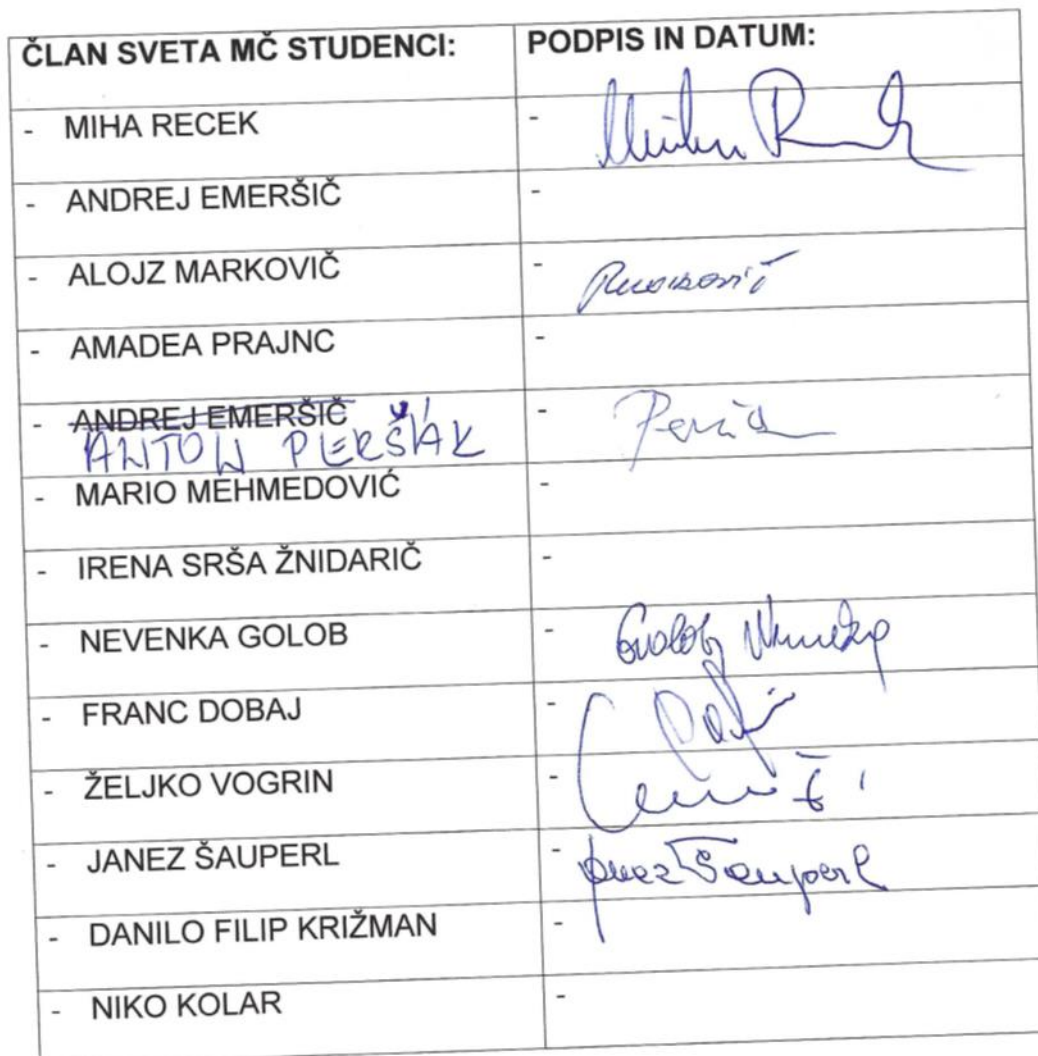 ČLAN SVETA MČ STUDENCI: PODPIS IN DATUM:
- MIHA RECEK -
- ANDREJ EMERŠIČ -
- ALOJZ MARKOVIČ -
- AMADEA PRAJNC -
- ANDREJ EMERŠIČ -
ANTON PERŠAK
- MARIO MEHMEDOVIĆ -
- IRENA SRŠA ŽNIDARIČ -
- NEVENKA GOLOB - Golob Nevenka
- FRANC DOBAJ -
- ŽELJKO VOGRIN -
- JANEZ ŠAUPERL - Janez Šauperl
- DANILO FILIP KRIŽMAN -
- NIKO KOLAR -